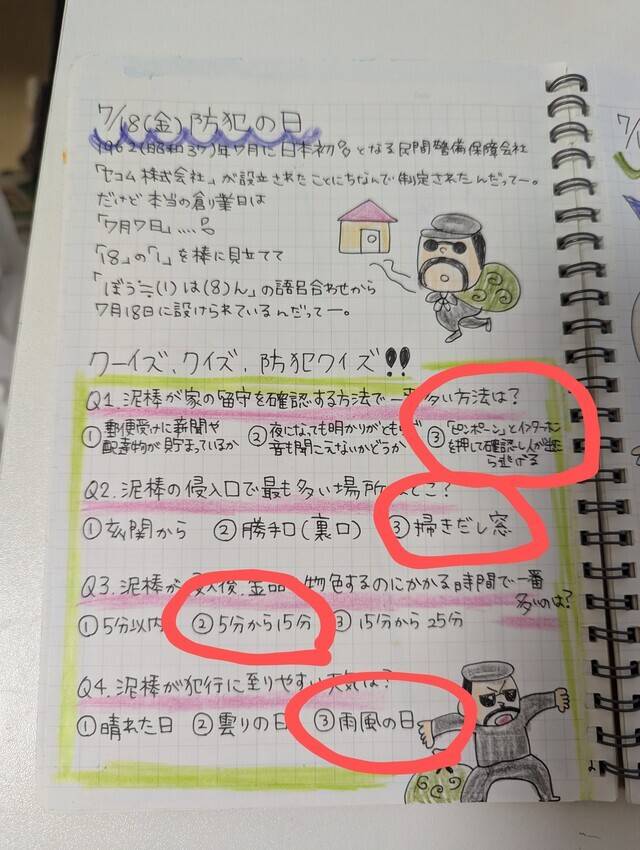 7/18(金)防犯の日
1962(昭和37)年7月に日本初となる民間警備保障会社
「セコム株式会社」が設立されたことにちなんで制定されたんだってー。
だけど本当の創業日は
「7月7日」....。
「18」の「1」を棒に見立てて
「ぼう≒(1)は(8)ん」の語呂合わせから
7月18日に設けられているんだってー。
クーイズ、クイズ、防犯クイズ!!
Q1.泥棒が家の留守を確認する方法で一番多い方法は?
①郵便受けに新聞や配達物が貯まっているか ②夜になっても明かりがともらず音も聞こえないかどうか ③「ピンポーン」とインターホンを押して確認し人が出たら逃げる
Q2.泥棒の侵入口で最も多い場所はどこ?
①玄関から ②勝手口(裏口) ③掃きだし窓
Q3.泥棒が侵入後、金品を物色するのにかかる時間で一番
多いのは?
①5分以内 ②5分から15分 ③15分から25分
Q4.泥棒が犯行に至りやすい天気は?
①晴れた日 ②雲りの日 ③雨風の日